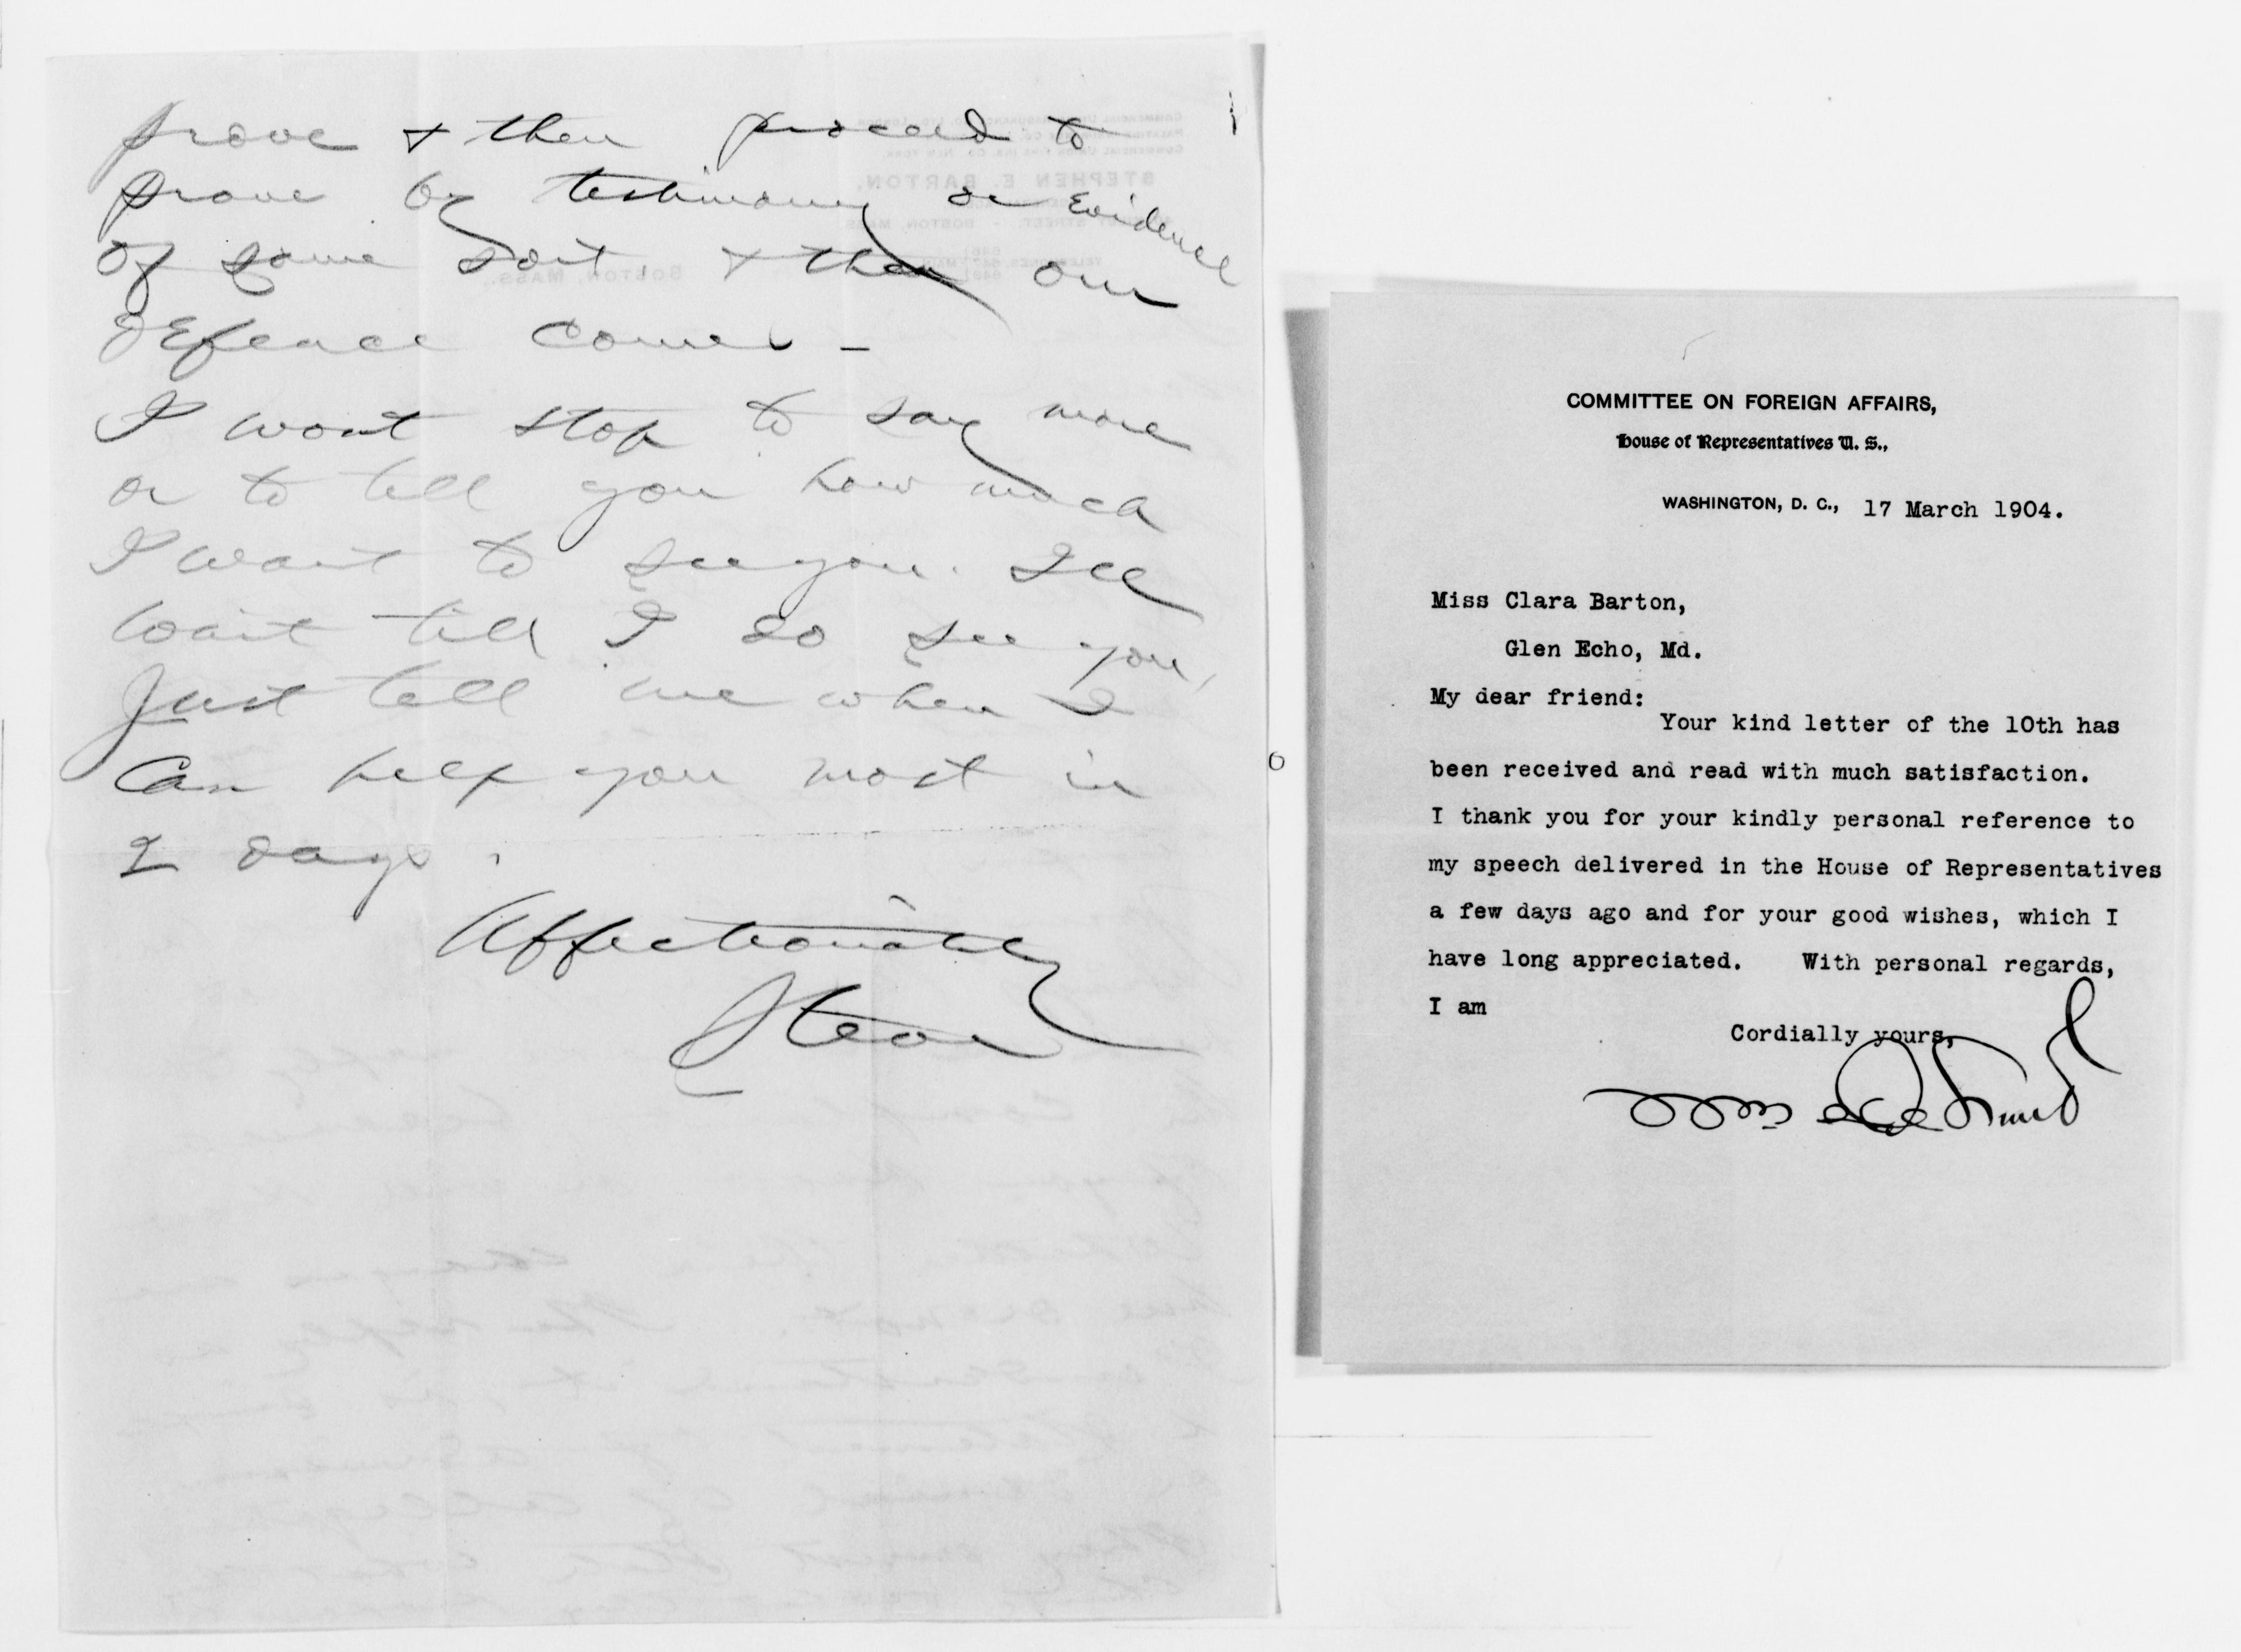 prove & then proceed to
prove by testimony or Evidence
of some sort, & then our
defence comes –
I wont stop to say more
or to tell you how much
I want to see you. Ill
wait till I do see you,
Just tell me when I
can help you most in
2 days.
Affectionately
Steve
COMMITTEE ON FOREIGN AFFAIRS,
House of Representatives U. S.,
WASHINGTON, D. C., 17 March 1904.
Miss Clara Barton,
Glen Echo, Md.
My dear friend:
Your kind letter of the 10th has
been received and read with much satisfaction.
I thank you for your kindly personal reference to
my speech delivered in the House of Representatives
a few days ago and for your good wishes, which I
have long appreciated. With personal regards,
I am
Cordially yours,